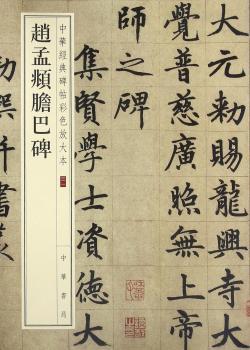 大元勑賜龍興寺
覺普慈廣照無上帝
師之碑
集賢學士資德大
中華經典碑帖彩色放大本
趙孟頫膽巴碑
中華書局